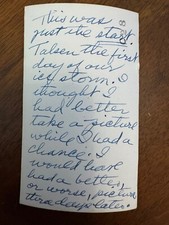 This was
just the start.
Taken the first
day of our
ice storm. I
thought I
had better
take a picture
while I had a
chance. I
would have
had a better,
or worse, picture
three days later.